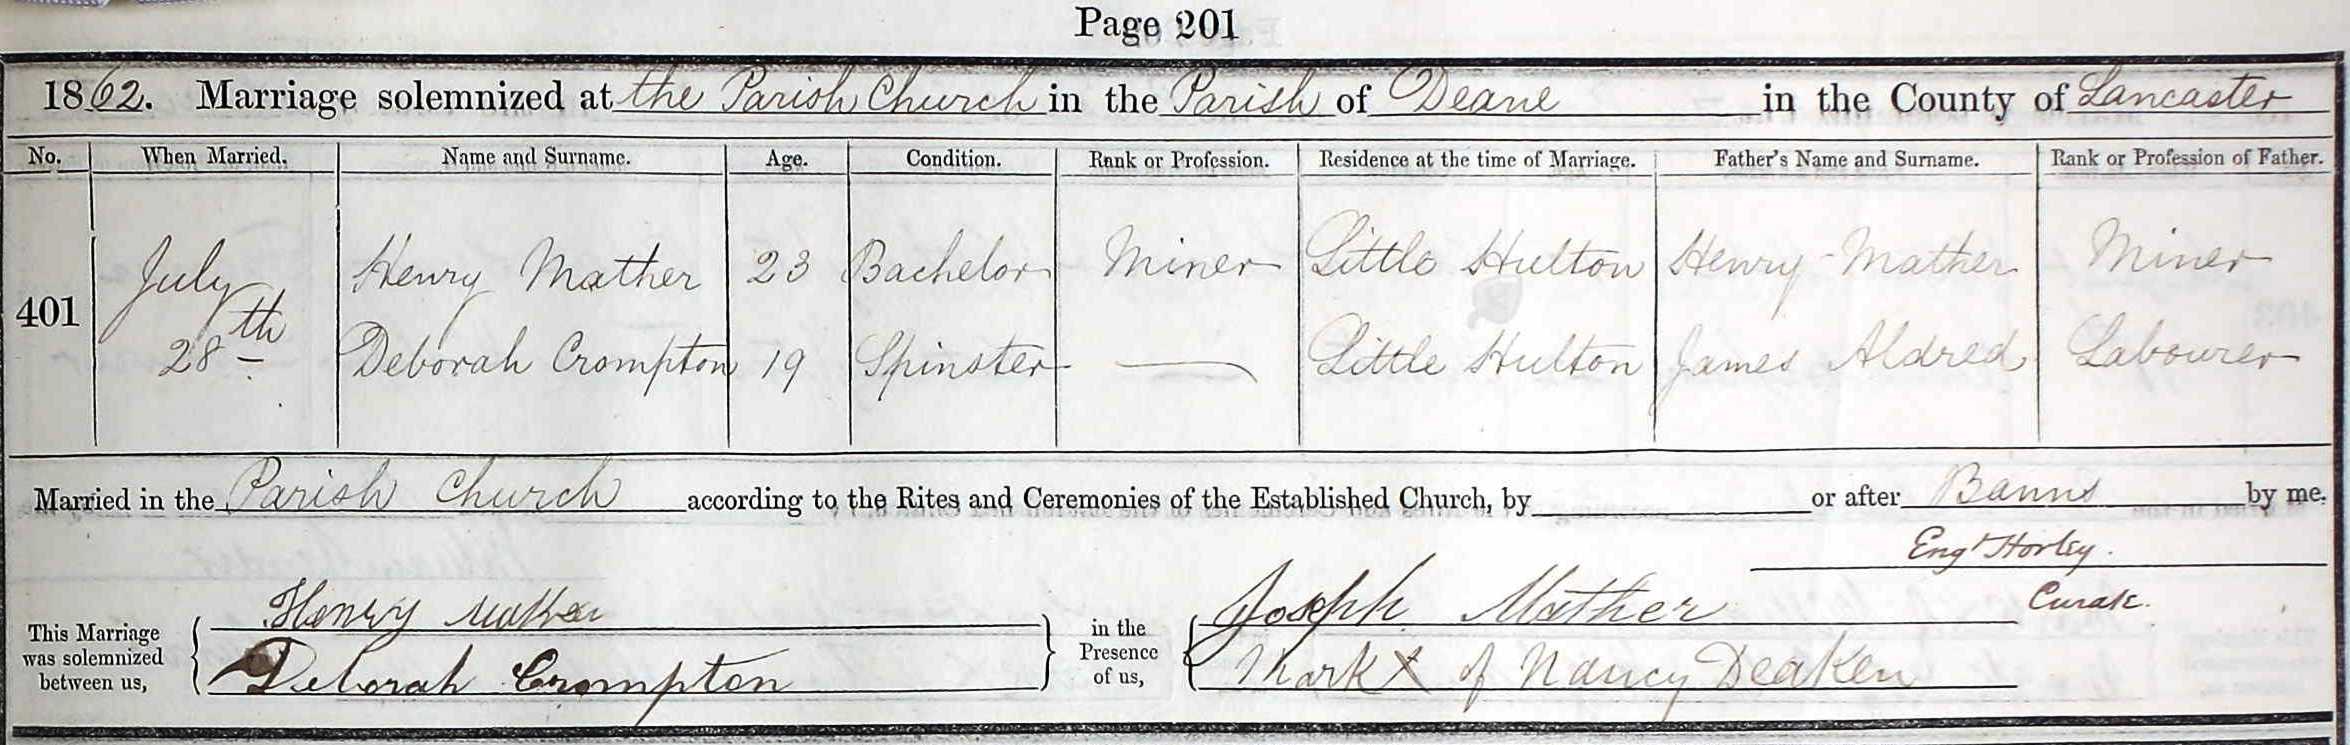 Page 201
1862. Marriage solemnized at the Parish Church in the Parish of Deane in the County of Lancaster
No. When Married. Name and Surname. Age. Condition. Rank or Profession. Residence at the time of Marriage. Father's Name and Surname. Rank or Profession of Father.
401 July 28th Henry Mather 23 Bachelor Miner Little Hulton Henry Mather Miner
Deborah Crompton 19 Spinster Little Hulton James Aldred Labourer
Married in the Parish Church according to the Rites and Ceremonies of the Established Church, by or after Banns by me.
Engt Horley.
Curate.
This Marriage was solemnized between us, Henry Mather in the Presence of us, Joseph Mather
Deborah Crompton Mark X of Nancy Deaken